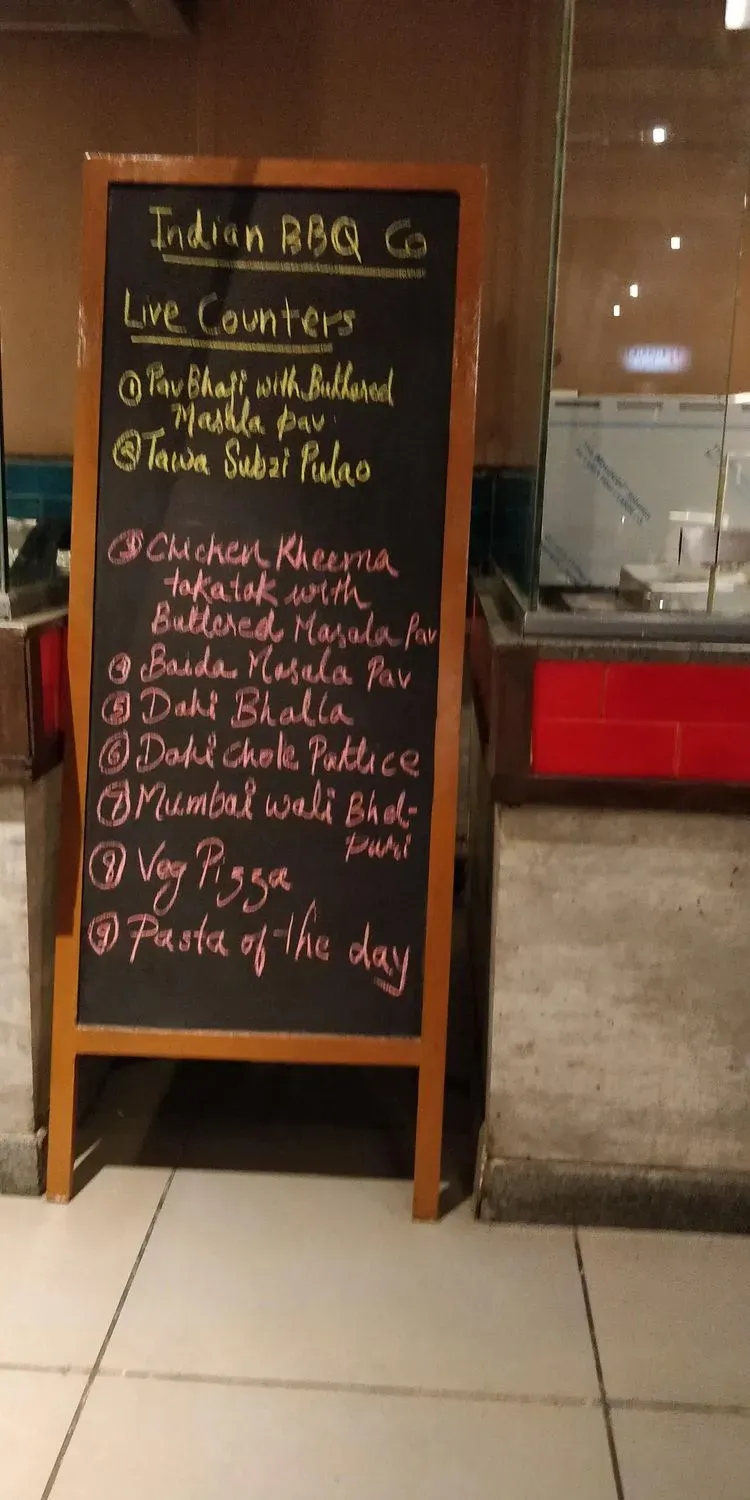 Indian BBQ Co
Live Counters
① Pav Bhaji with Buttered
Masala pav.
② Tawa Subzi Pulao
③ Chicken Kheema
takatak with
Buttered Masala Pav
④ Baida Masala Pav
⑤ Dahi Bhalla
⑥ Dahi chole Pattice
⑦ Mumbai wali Bhel-
puri
⑧ Veg Pizza
⑨ Pasta of the day